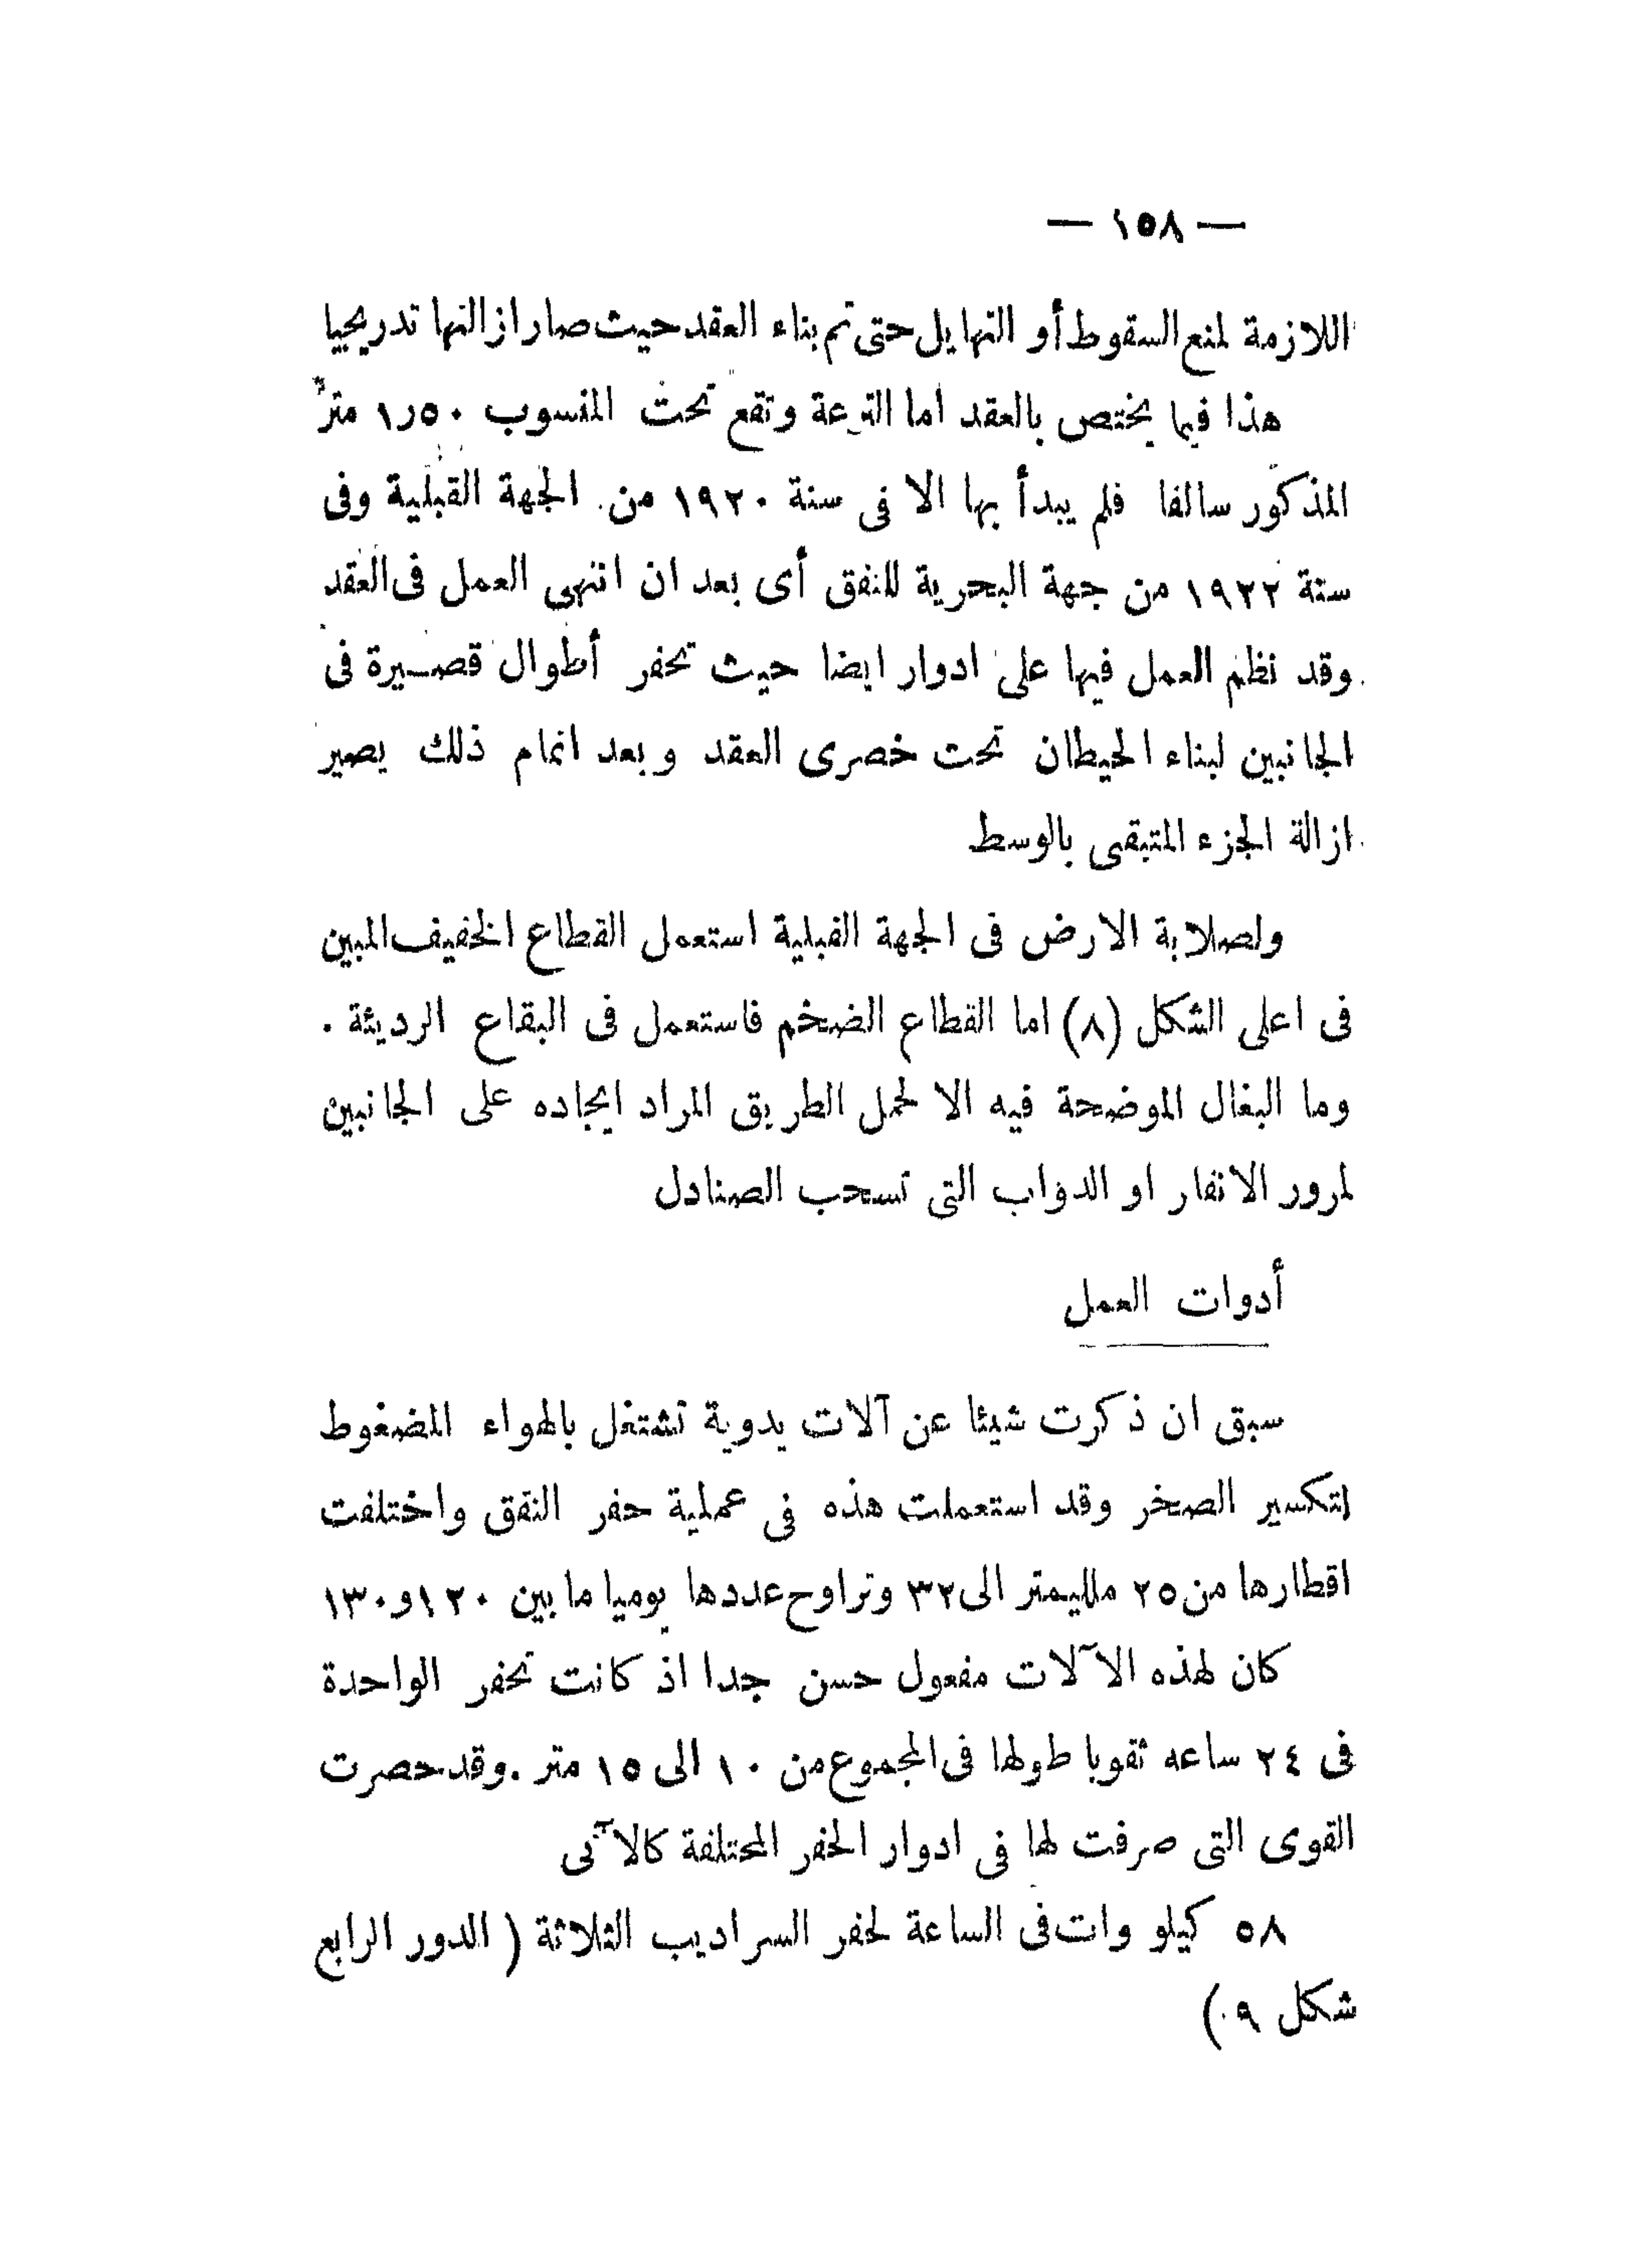 — ١٥٨ —
اللازمة لمنع السقوط أو التهايل حتى تم بناء العقد حيث صار ازالتها تدريجيا
هذا فيما يختص بالعقد اما الترعة وتقع تحت المنسوب ١٫٥٠ متر
المذكور سالفا فلم يبدأ بها الا فى سنة ١٩٢٠ من الجهة القبلية وفى
سنة ١٩٢٢ من جهة البحرية للنفق أى بعد ان انتهى العمل فى العقد
وقد نظم العمل فيها على ادوار ايضا حيث تحفر أطوال قصيرة فى
الجانبين لبناء الحيطان تحت خصرى العقد وبعد اتمام ذلك يصير
ازالة الجزء المتبقى بالوسط
ولصلابة الارض فى الجهة القبلية استعمل القطاع الخفيف المبين
فى اعلى الشكل (٨) اما القطاع الضخم فاستعمل فى البقاع الرديئة .
وما البغال الموضحة فيه الا لحمل الطريق المراد ايجاده على الجانبين
لمرور الانفار او الدواب التى تسحب الصنادل
أدوات العمل
سبق ان ذكرت شيئا عن آلات يدوية تشتغل بالهواء المضغوط
لتكسير الصخر وقد استعملت هذه فى عملية حفر النفق واختلفت
اقطارها من ٢٥ ملليمتر الى ٣٢ وتراوح عددها يوميا ما بين ١٢٠ و١٣٠
كان لهذه الآلات مفعول حسن جدا اذ كانت تحفر الواحدة
فى ٢٤ ساعه ثقوبا طولها فى المجموع من ١٠ الى ١٥ متر . وقد حصرت
القوى التى صرفت لها فى ادوار الحفر المختلفة كالآتى
٥٨ كيلو وات فى الساعة لحفر السراديب الثلاثة ( الدور الرابع
شكل ٩ )